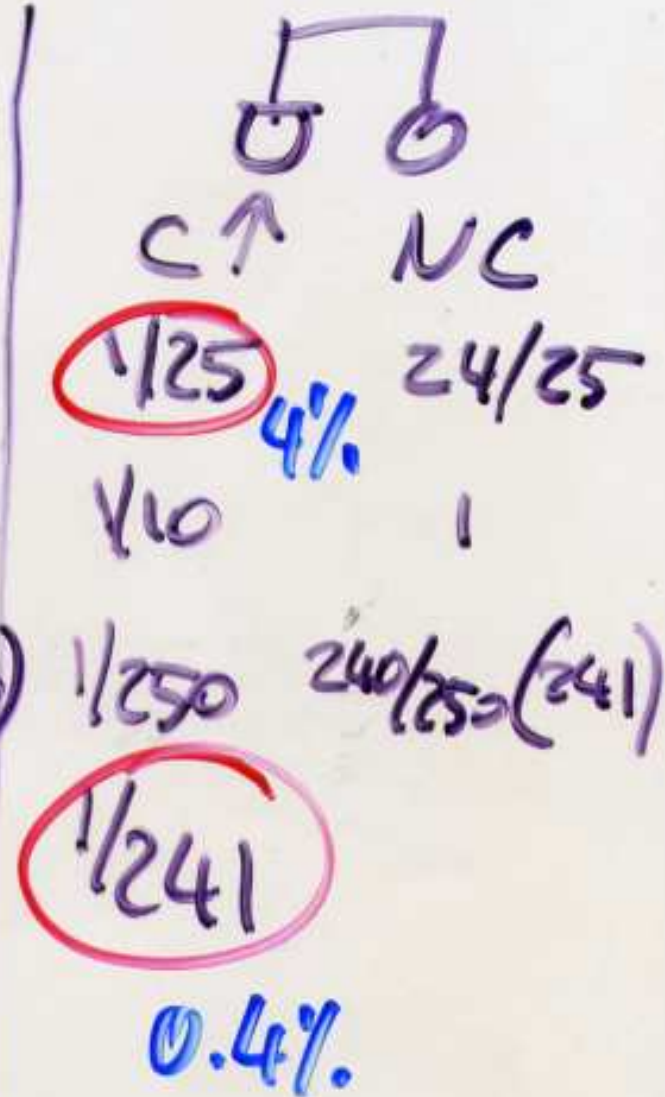 C ↑ NC
1/25 24/25
4%
1/10 1
) 1/250 240/250 (241)
1/241
0.4%